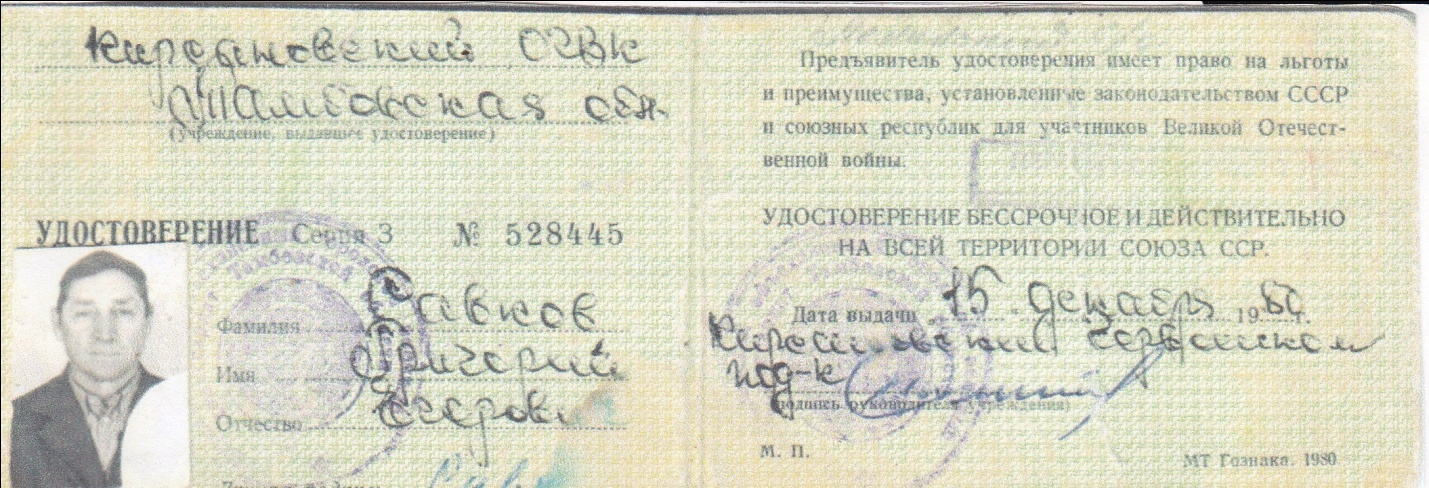 Кирсановский ОГВК
Тамбовская обл.
(учреждение, выдавшее удостоверение)
УДОСТОВЕРЕНИЕ Серия З № 528445
Фамилия Савков
Имя Григорий
Отчество Егорович
Предъявитель удостоверения имеет право на льготы
и преимущества, установленные законодательством СССР
и союзных республик для участников Великой Отечест-
венной войны.
УДОСТОВЕРЕНИЕ БЕССРОЧНОЕ И ДЕЙСТВИТЕЛЬНО
НА ВСЕЙ ТЕРРИТОРИИ СОЮЗА ССР.
Дата выдачи 15 декабря 1980 г.
Кирсановский
под-к
(подпись руководителя учреждения)
М. П.
МТ Гознака. 1980